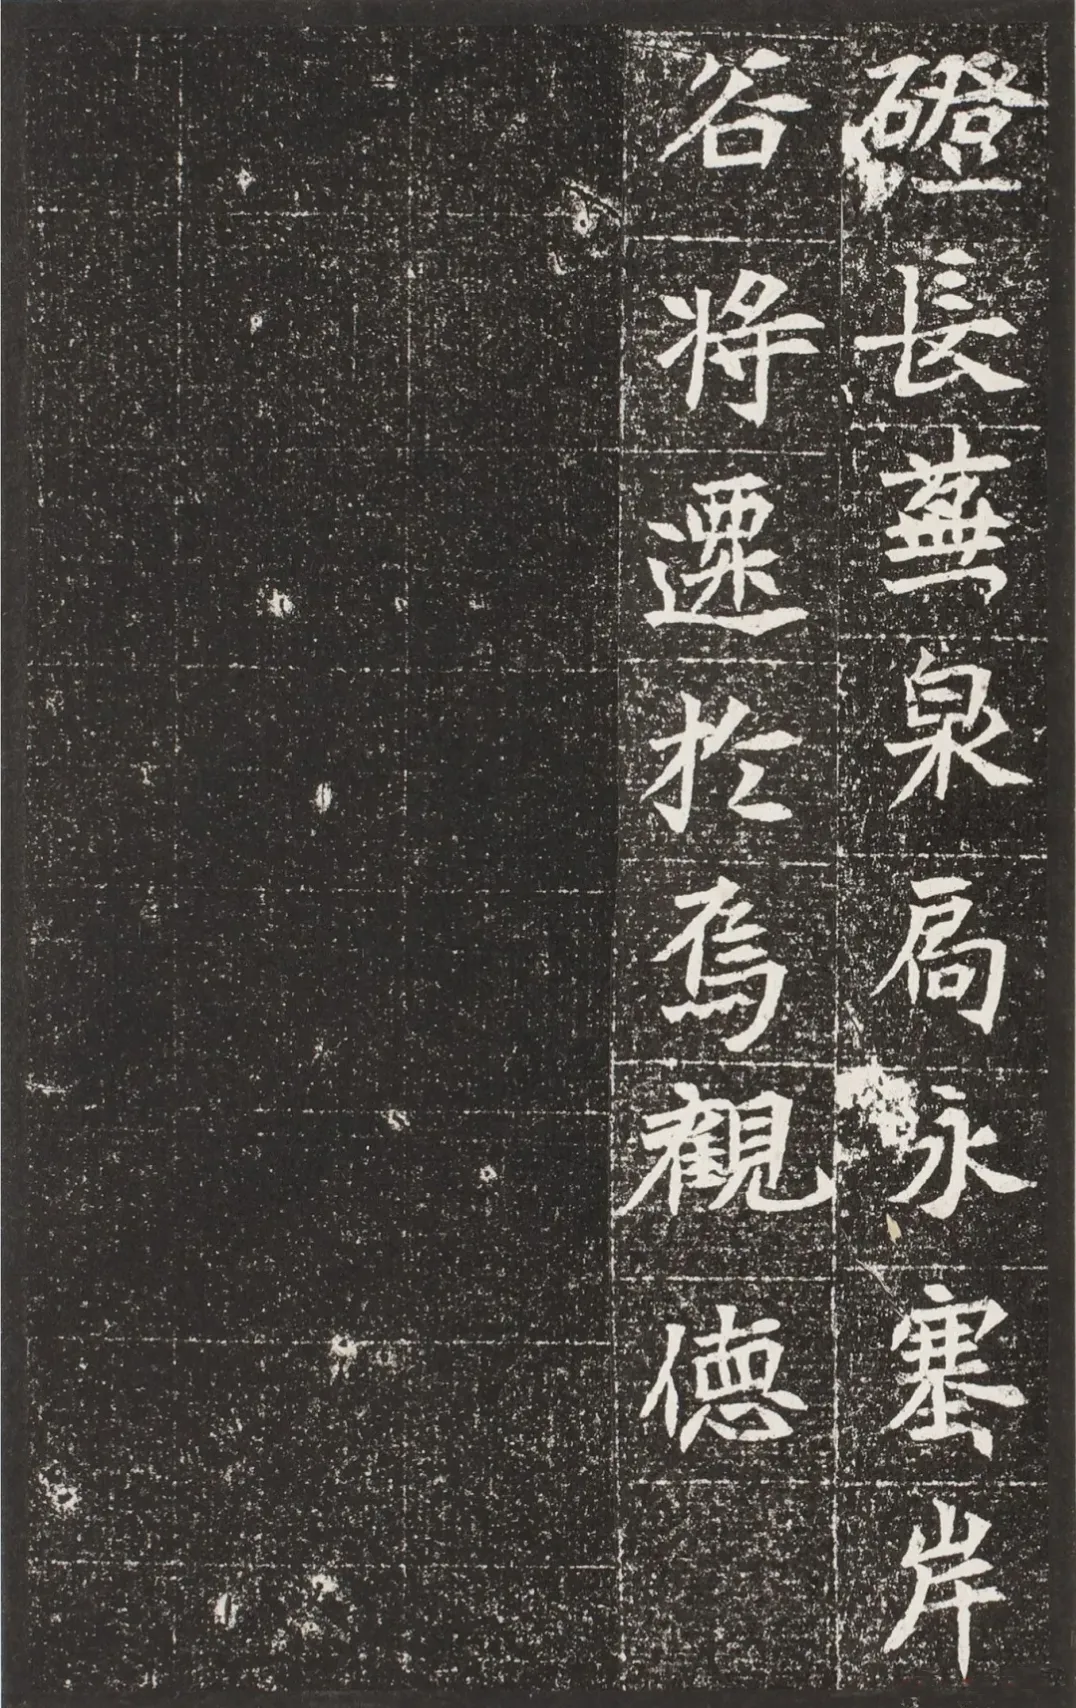 磴長蕪泉扃永塞岸
谷將遷於焉觀德